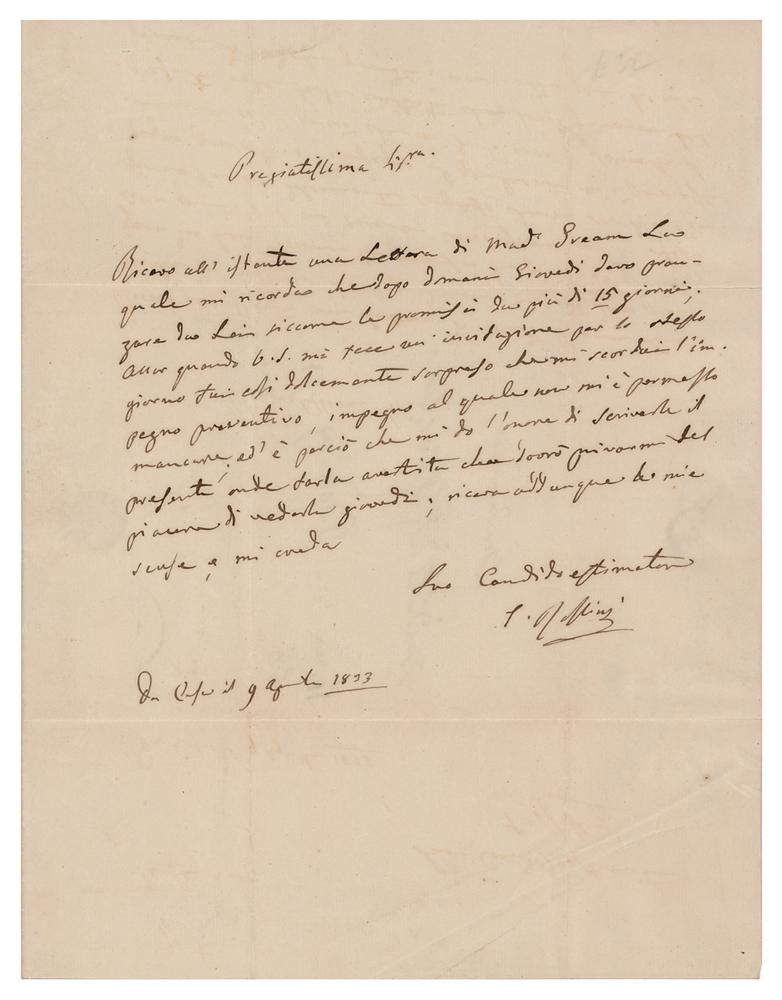 Pregiatissima Sig.ra
Ricevo all'istante una Lettera di Mad.e Gream La
quale mi ricorda che dopo domani Giovedì devo pran-
zare da Lei siccome le promisi da più di 15 giorni;
allor quando V. S. mi fece un' invitazione per lo stesso
giorno fui così dolcemente sorpreso che mi scordai l'im-
pegno preventivo, impegno al quale non mi è permesso
mancare, ed' è perciò che mi do l'onore di scriverle il
presente onde farla avertita che dovrò privarmi del
piacere di vederla giovedì; riceva addunque le mie
scuse e mi creda
Suo Candido estimatore
G. Rossini
Da Casa il 9 aprile 1833